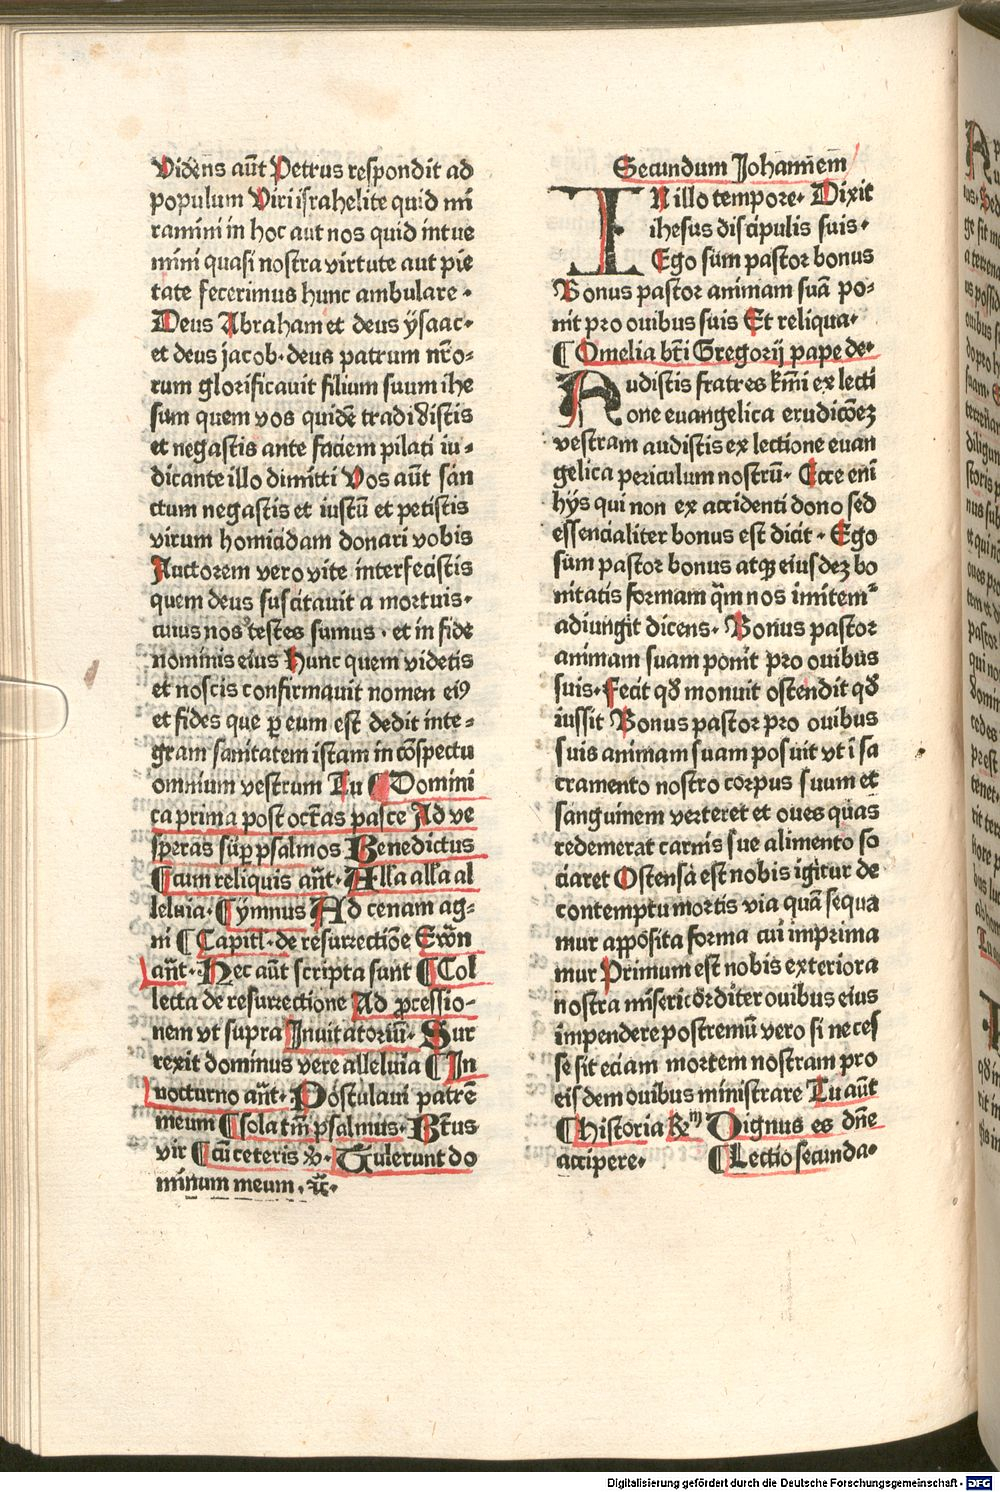 Videns aūt Petrus respondit ad
populum Viri israhelite quid mi
ramini in hoc aut nos quid intue
mini quasi nostra virtute aut pie
tate fecerimus hunc ambulare.
Deus Abraham et deus ysaac.
et deus jacob. deus patrum nr̄o-
rum glorificauit filium suum ihe
sum quem vos quidē tradidistis
et negastis ante faciem pilati iu-
dicante illo dimitti Vos aūt san
ctum negastis et iustū et petistis
virum homicidam donari vobis
Auctorem vero vite interfecistis
quem deus suscitauit a mortuis.
cuius nos testes sumus. et in fide
nominis eius Hunc quem videtis
et noscis confirmauit nomen eiꝰ
et fides que ꝑ eum est dedit inte-
gram sanitatem istam in cōspectu
omnium vestrum Tu ¶ Domini
ca prima post oct̄as pasce Ad ve
speras suꝑ psalmos Benedictus
¶ cum reliquis an̄t. Alla alla al
leluia. ¶ ymnus Ad cenam ag-
ni ¶ Capitl. de resurrectiōe Ewn̄
an̄t. Hec aūt scripta sunt ¶ Col
lecta de resurrectione Ad ꝓcessio-
nem vt supra Inuitatoriū. Sur
rexit dominus vere alleluia ¶ In
nocturno an̄t. Postulaui patrē
meum ¶ sola tm̄ psalmus. Bt̄us
vir ¶ cū ceteris Tulerunt do
minum meum. ꝛc̄.
Secundum Johannem
IN illo tempore. Dixit
ihesus discipulis suis.
Ego sum pastor bonus
Bonus pastor animam suā po-
nit pro ouibus suis Et reliqua.
¶ Omelia bt̄i Gregorij pape de.
Audistis fratres km̄i ex lecti
one euangelica erudicōeꝫ
vestram audistis ex lectione euan
gelica periculum nostrū. Ecce eni
hys qui non ex accidenti dono sed
essencialiter bonus est dicit. Ego
sum pastor bonus atqꝫ eiusdeꝫ bo
nitatis formam qm̄ nos imitem᷑
adiungit dicens. Bonus pastor
animam suam ponit pro ouibus
suis. Fecit qđ monuit ostendit qđ
iussit Bonus pastor pro ouibus
suis animam suam posuit vt ī sa
cramento nostro corpus suum et
sanguinem verteret et oues quas
redemerat carnis sue alimento so
ciaret Ostensa est nobis igitur de
contemptu mortis via quā sequa
mur apposita forma cui imprima
mur Primum est nobis exteriora
nostra misericorditer ouibus eius
impendere postremū vero si neces
se sit eciam mortem nostram pro
eisdem ouibus ministrare Tu aūt
¶ Historia Rm Dignus es dn̄e
accipere. ¶ Lectio secunda.
Digitalisierung gefördert durch die Deutsche Forschungsgemeinschaft - DFG